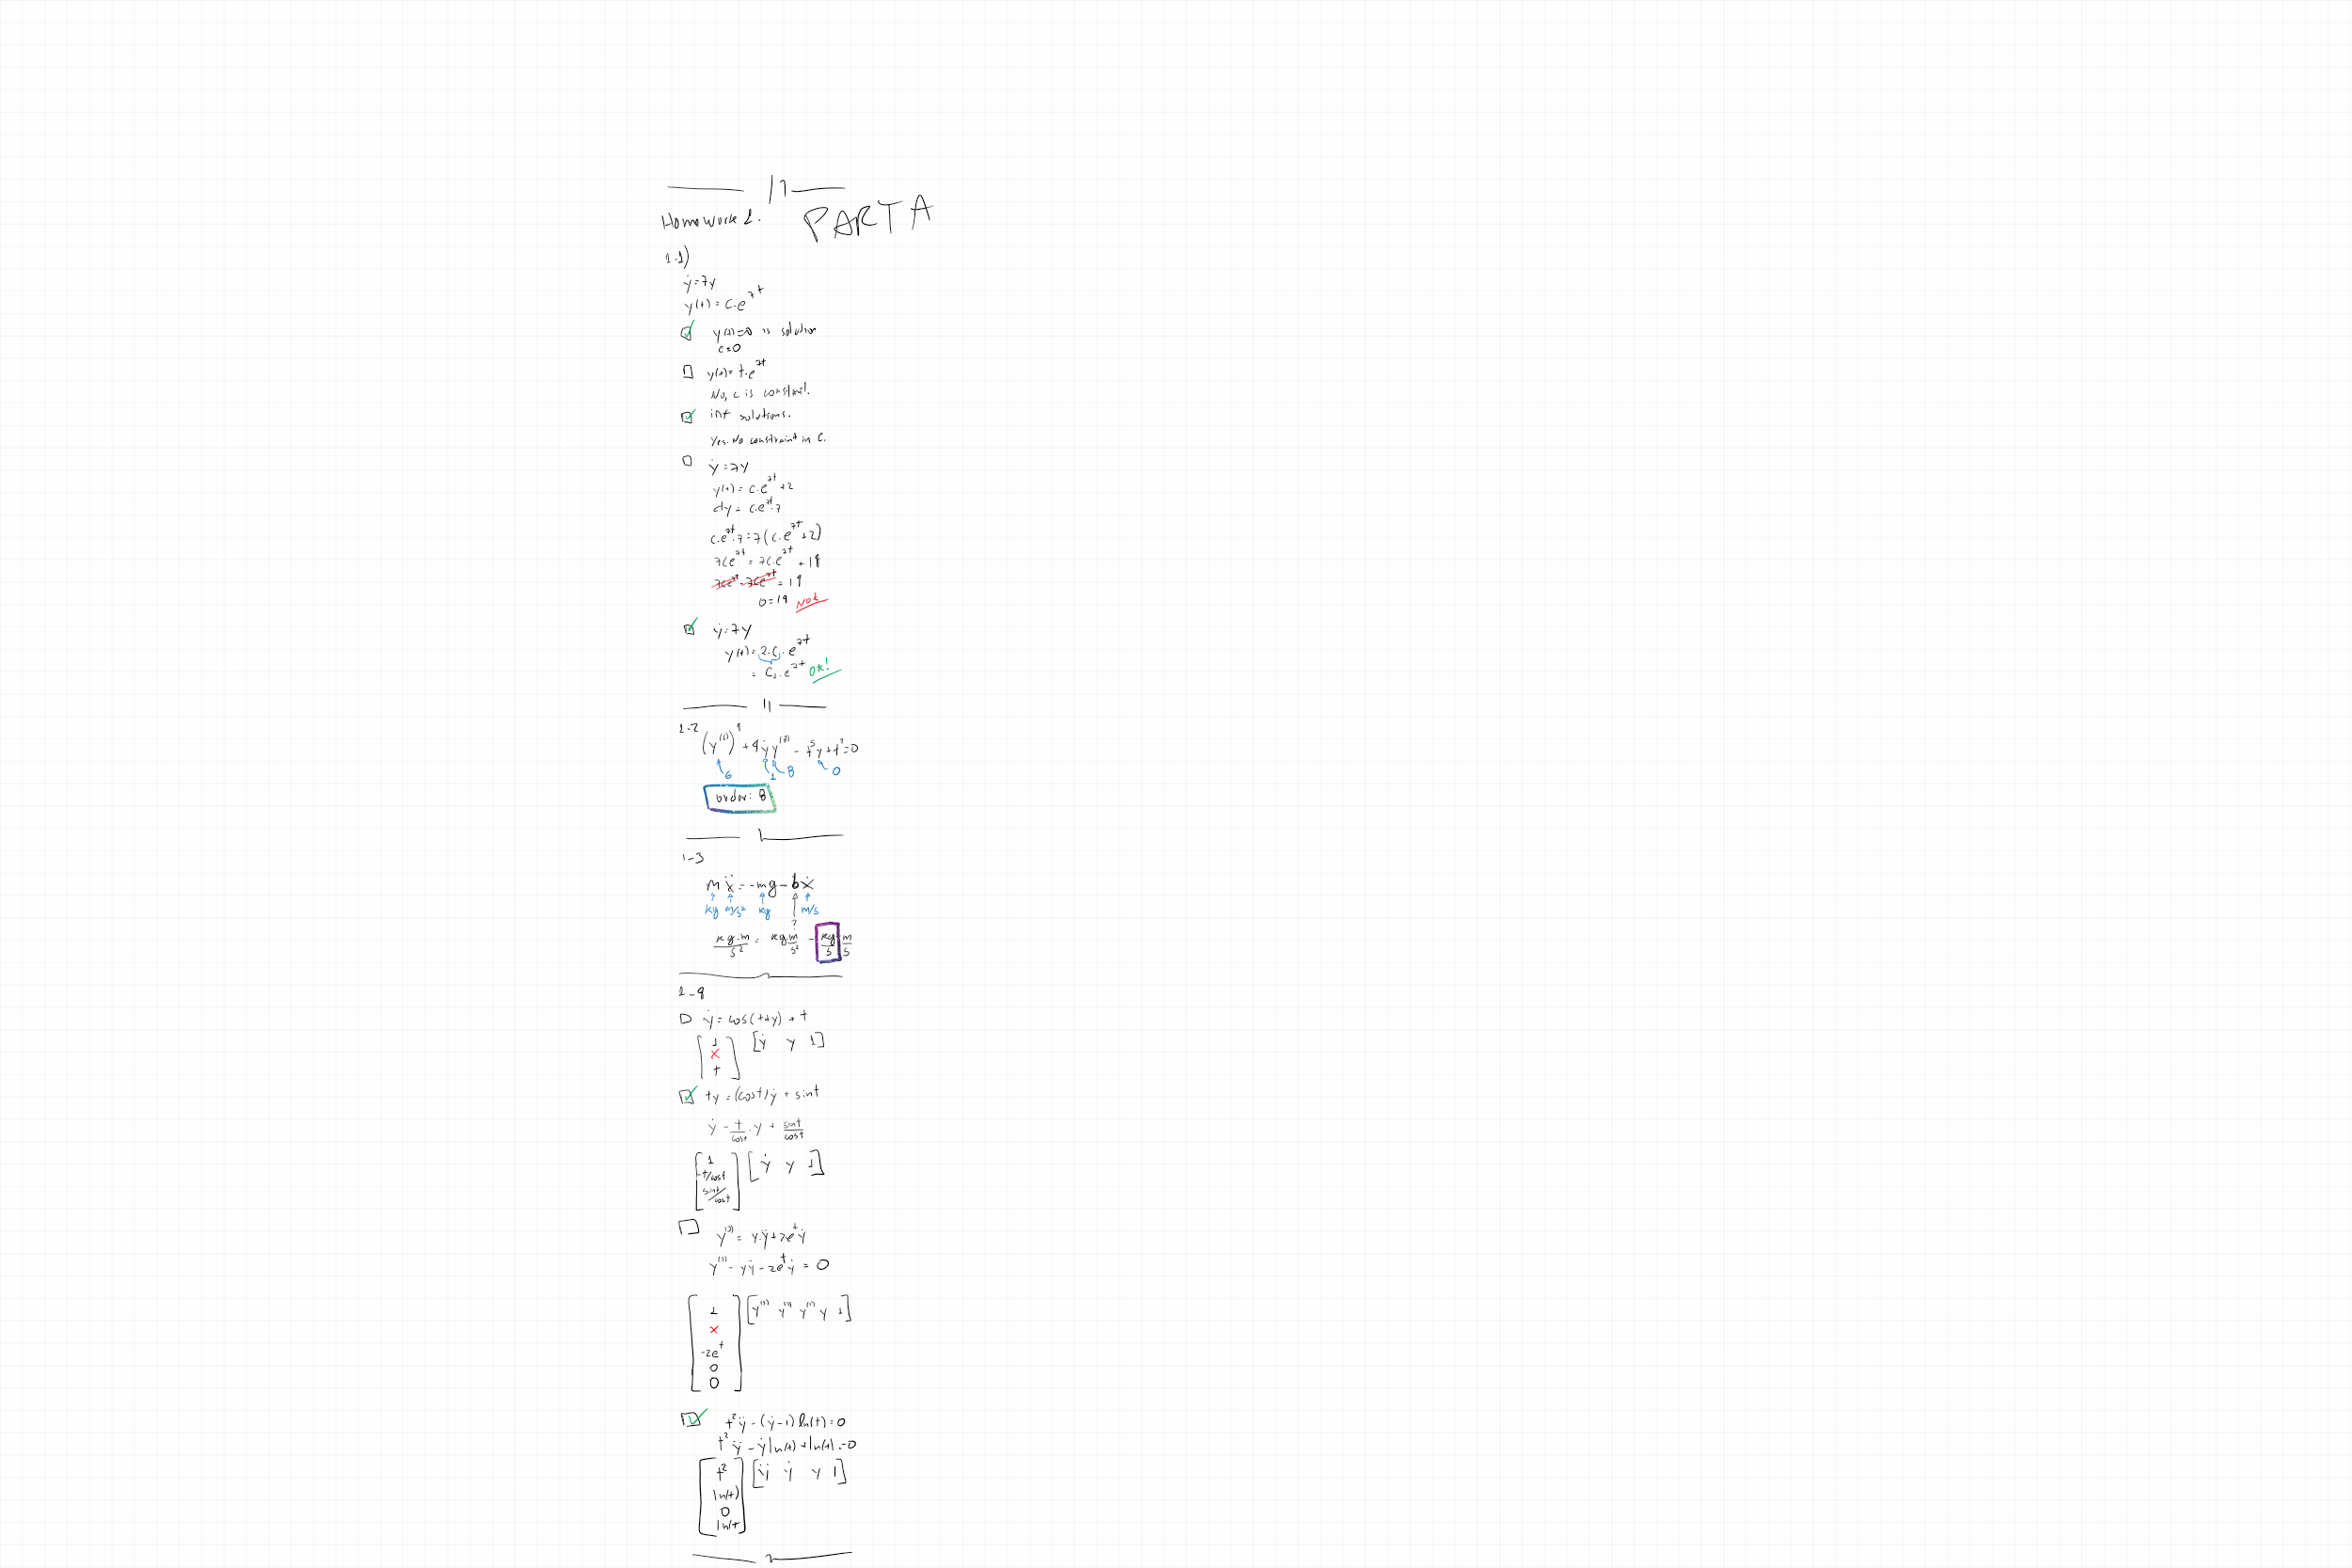 Homework 1.
PART A
1-1)
ẏ=7y
y(t) = c.e^7t
y(t)=0 is solution
c=0
y(t)= t.e^7t
No, c is constant.
inf solutions.
Yes. No constraint in C.
ẏ=7y
y(t) = c.e^7t +2
dy = c.e^7t.7
c.e^7t.7=7(c.e^7t+2)
7ce^7t = 7c.e^7t + 14
7ce^7t - 7ce^7t = 14
0=14
ẏ=7y
y(t)= 2.C. e^7t
= C₁.e^7t OK!
1-2
(y^(6))^4 + 4ẏy^(8) - t^5y+t^2=0
6 1 8 0
order: 8
1-3
mẍ=-mg-bẋ
kg m/s² kg ? m/s
kg.m/s² = kg m/s² - kg/s m/s
1-4
ẏ=cos(t+y) + t
[1 × t] [ẏ y 1]
ty = (cost)ẏ + sint
ẏ - t/cost . y + sint/cost
[1 -t/cost sint/cost] [ẏ y 1]
y^(3) = y.ÿ+2e^tẏ
y^(3) - yÿ - 2e^tẏ = 0
[1 × -2e^t 0 0] [y^(3) y^(2) y^(1) y 1]
t²ÿ - (ẏ-1)ln(t)=0
t²ÿ - ẏln(t)+ln(t)=0
[t² ln(t) 0 ln(t] [ÿ ẏ y 1]